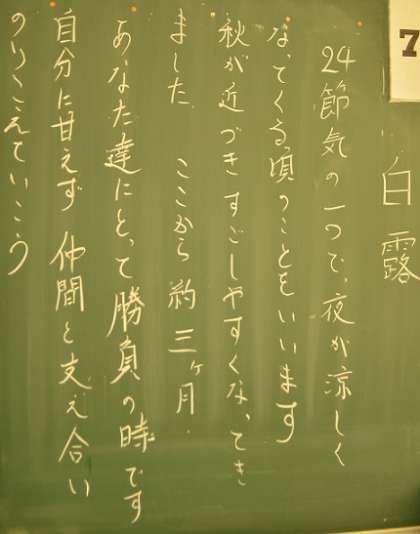 白露
24節気の一つで、夜が涼しく
なってくる頃のことをいいます
秋が近づきすごしやすくなってき
ました ここから約三ヶ月
あなた達にとって勝負の時です
自分に甘えず 仲間と支え合い
のりこえていこう
7